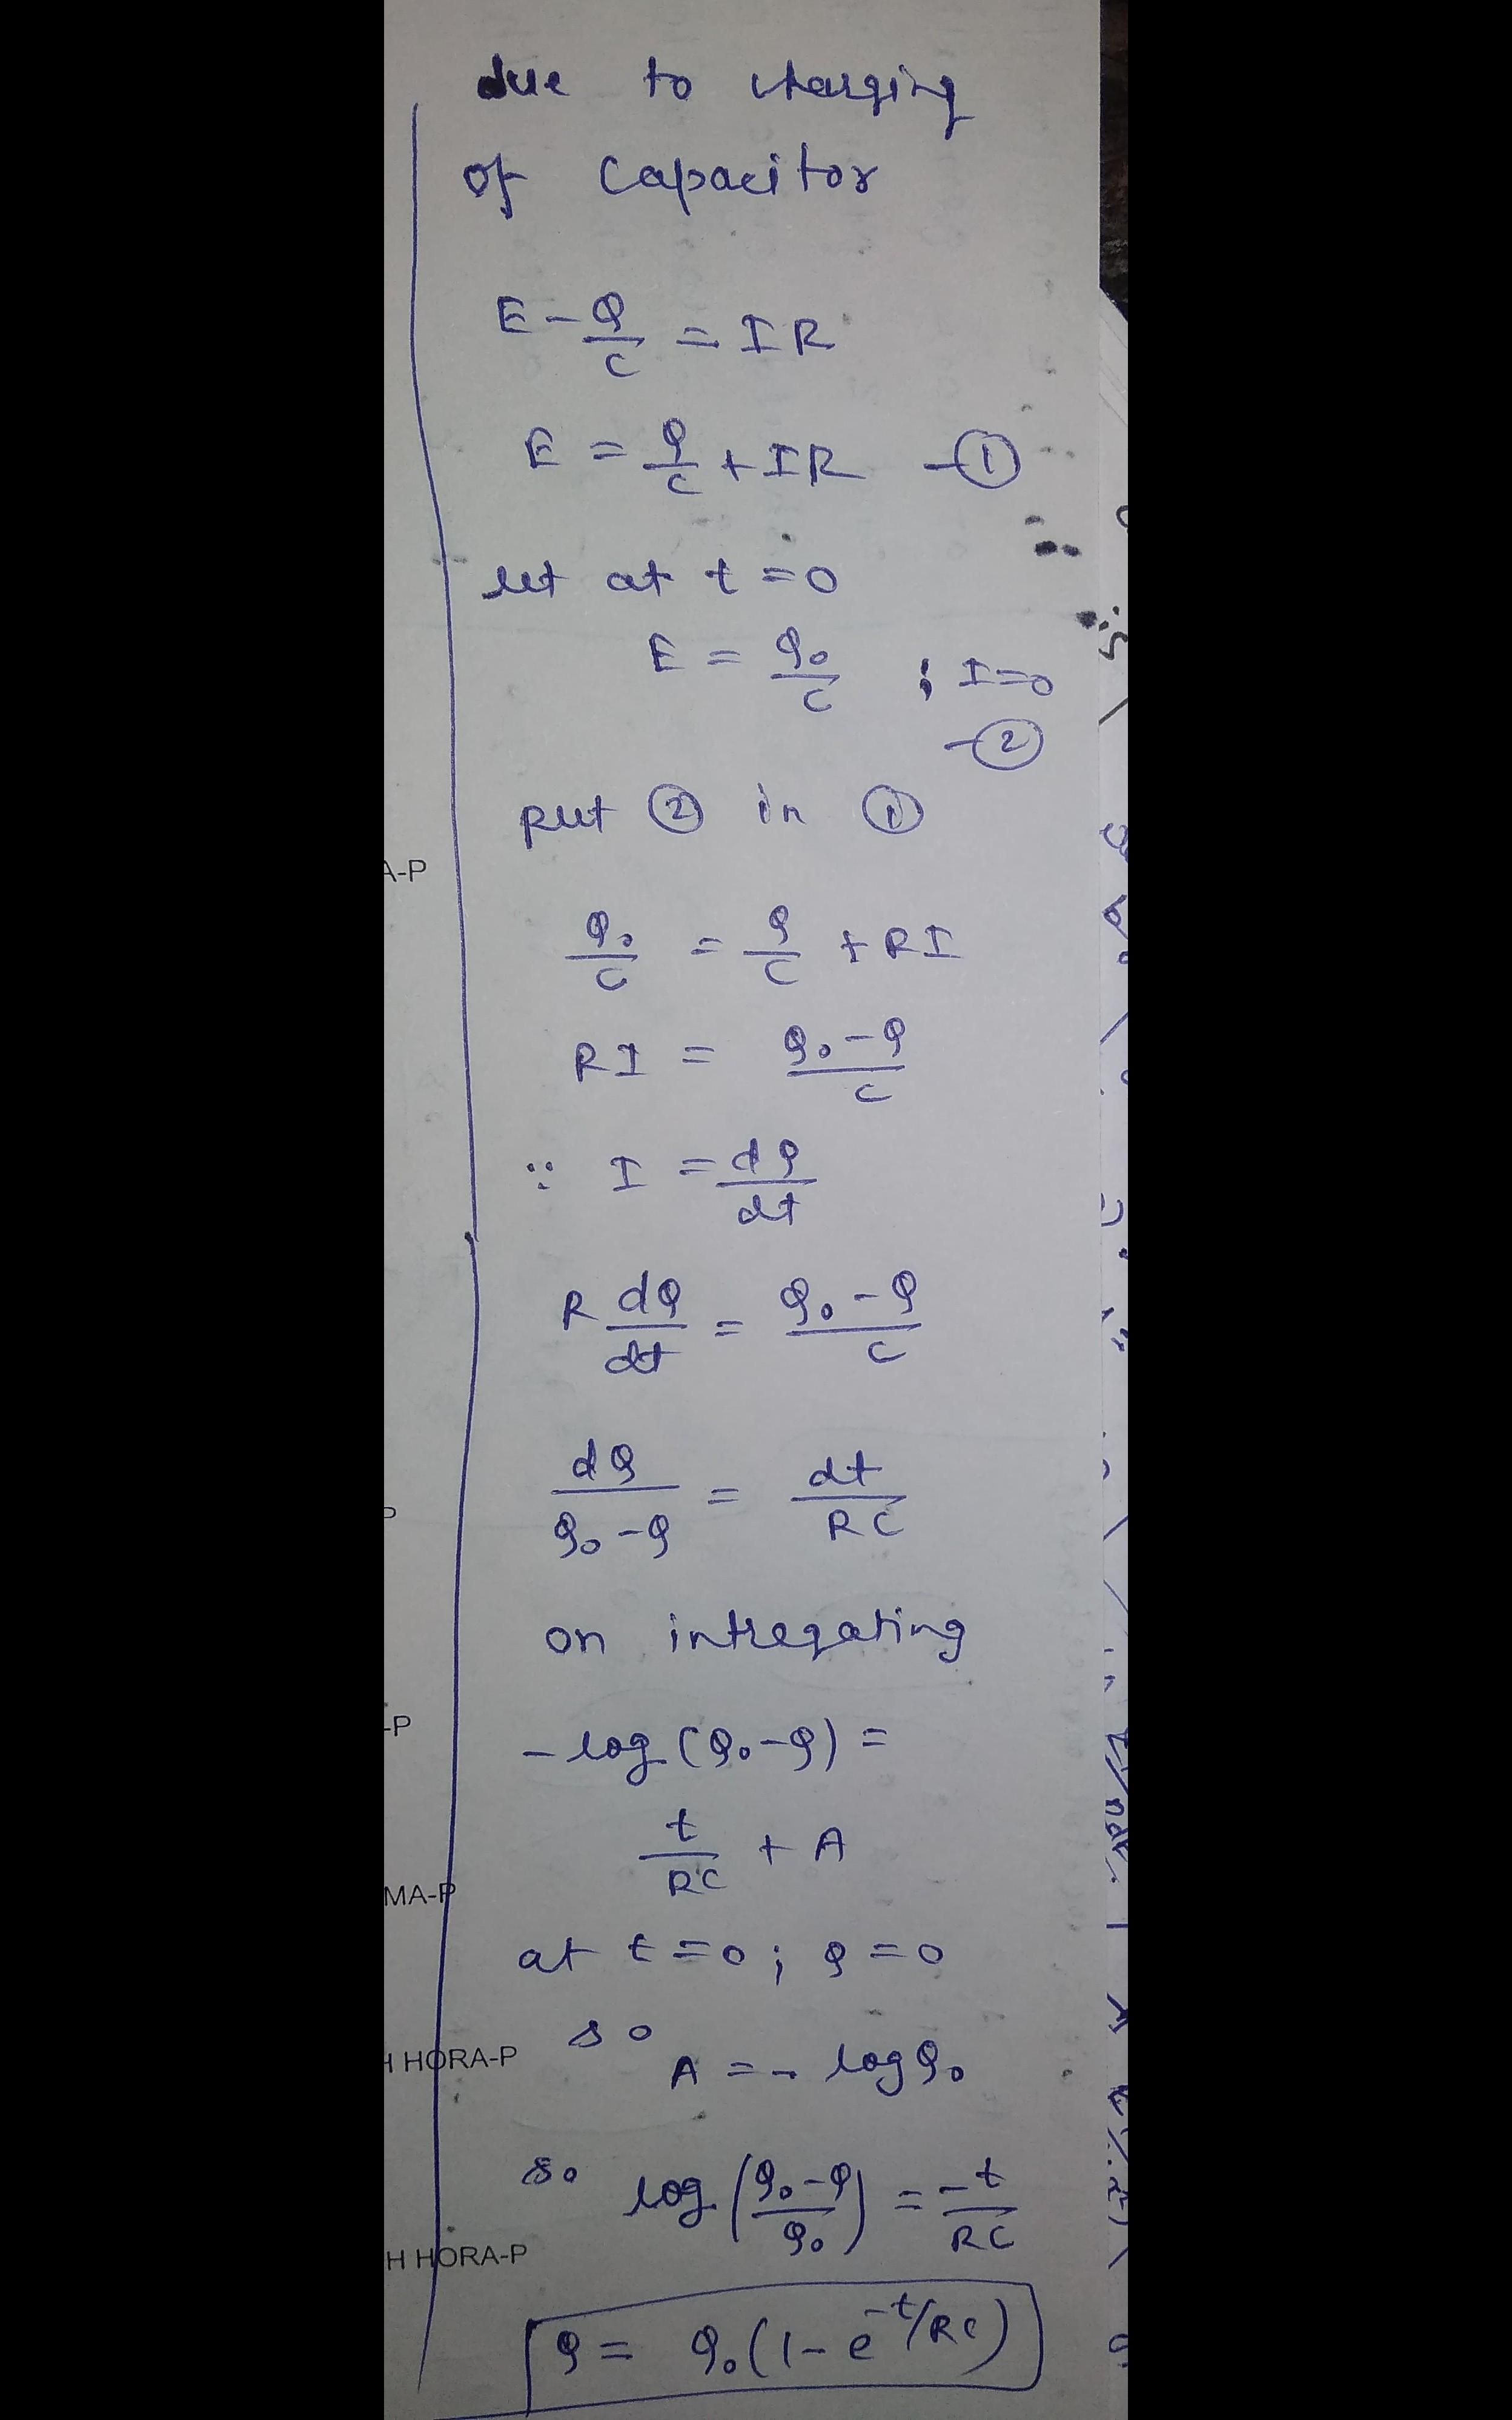 due to charging
of capacitor
E - Q/C = IR
E = Q/C + IR -①
let at t=0
E = Q₀/C ; I=0
-②
put ② in ①
Q₀/C = Q/C + RI
RI = Q₀-Q/C
∵ I = dQ/dt
R dQ/dt = Q₀-Q/C
dQ/Q₀-Q = dt/RC
on intregating
-log(Q₀-Q) =
t/RC + A
at t=0 ; Q=0
so
A = - log Q₀
so log(Q₀-Q/Q₀) = -t/RC
Q = Q₀(1-e^-t/RC)
A-P
-P
MA-P
H HORA-P
H HORA-P